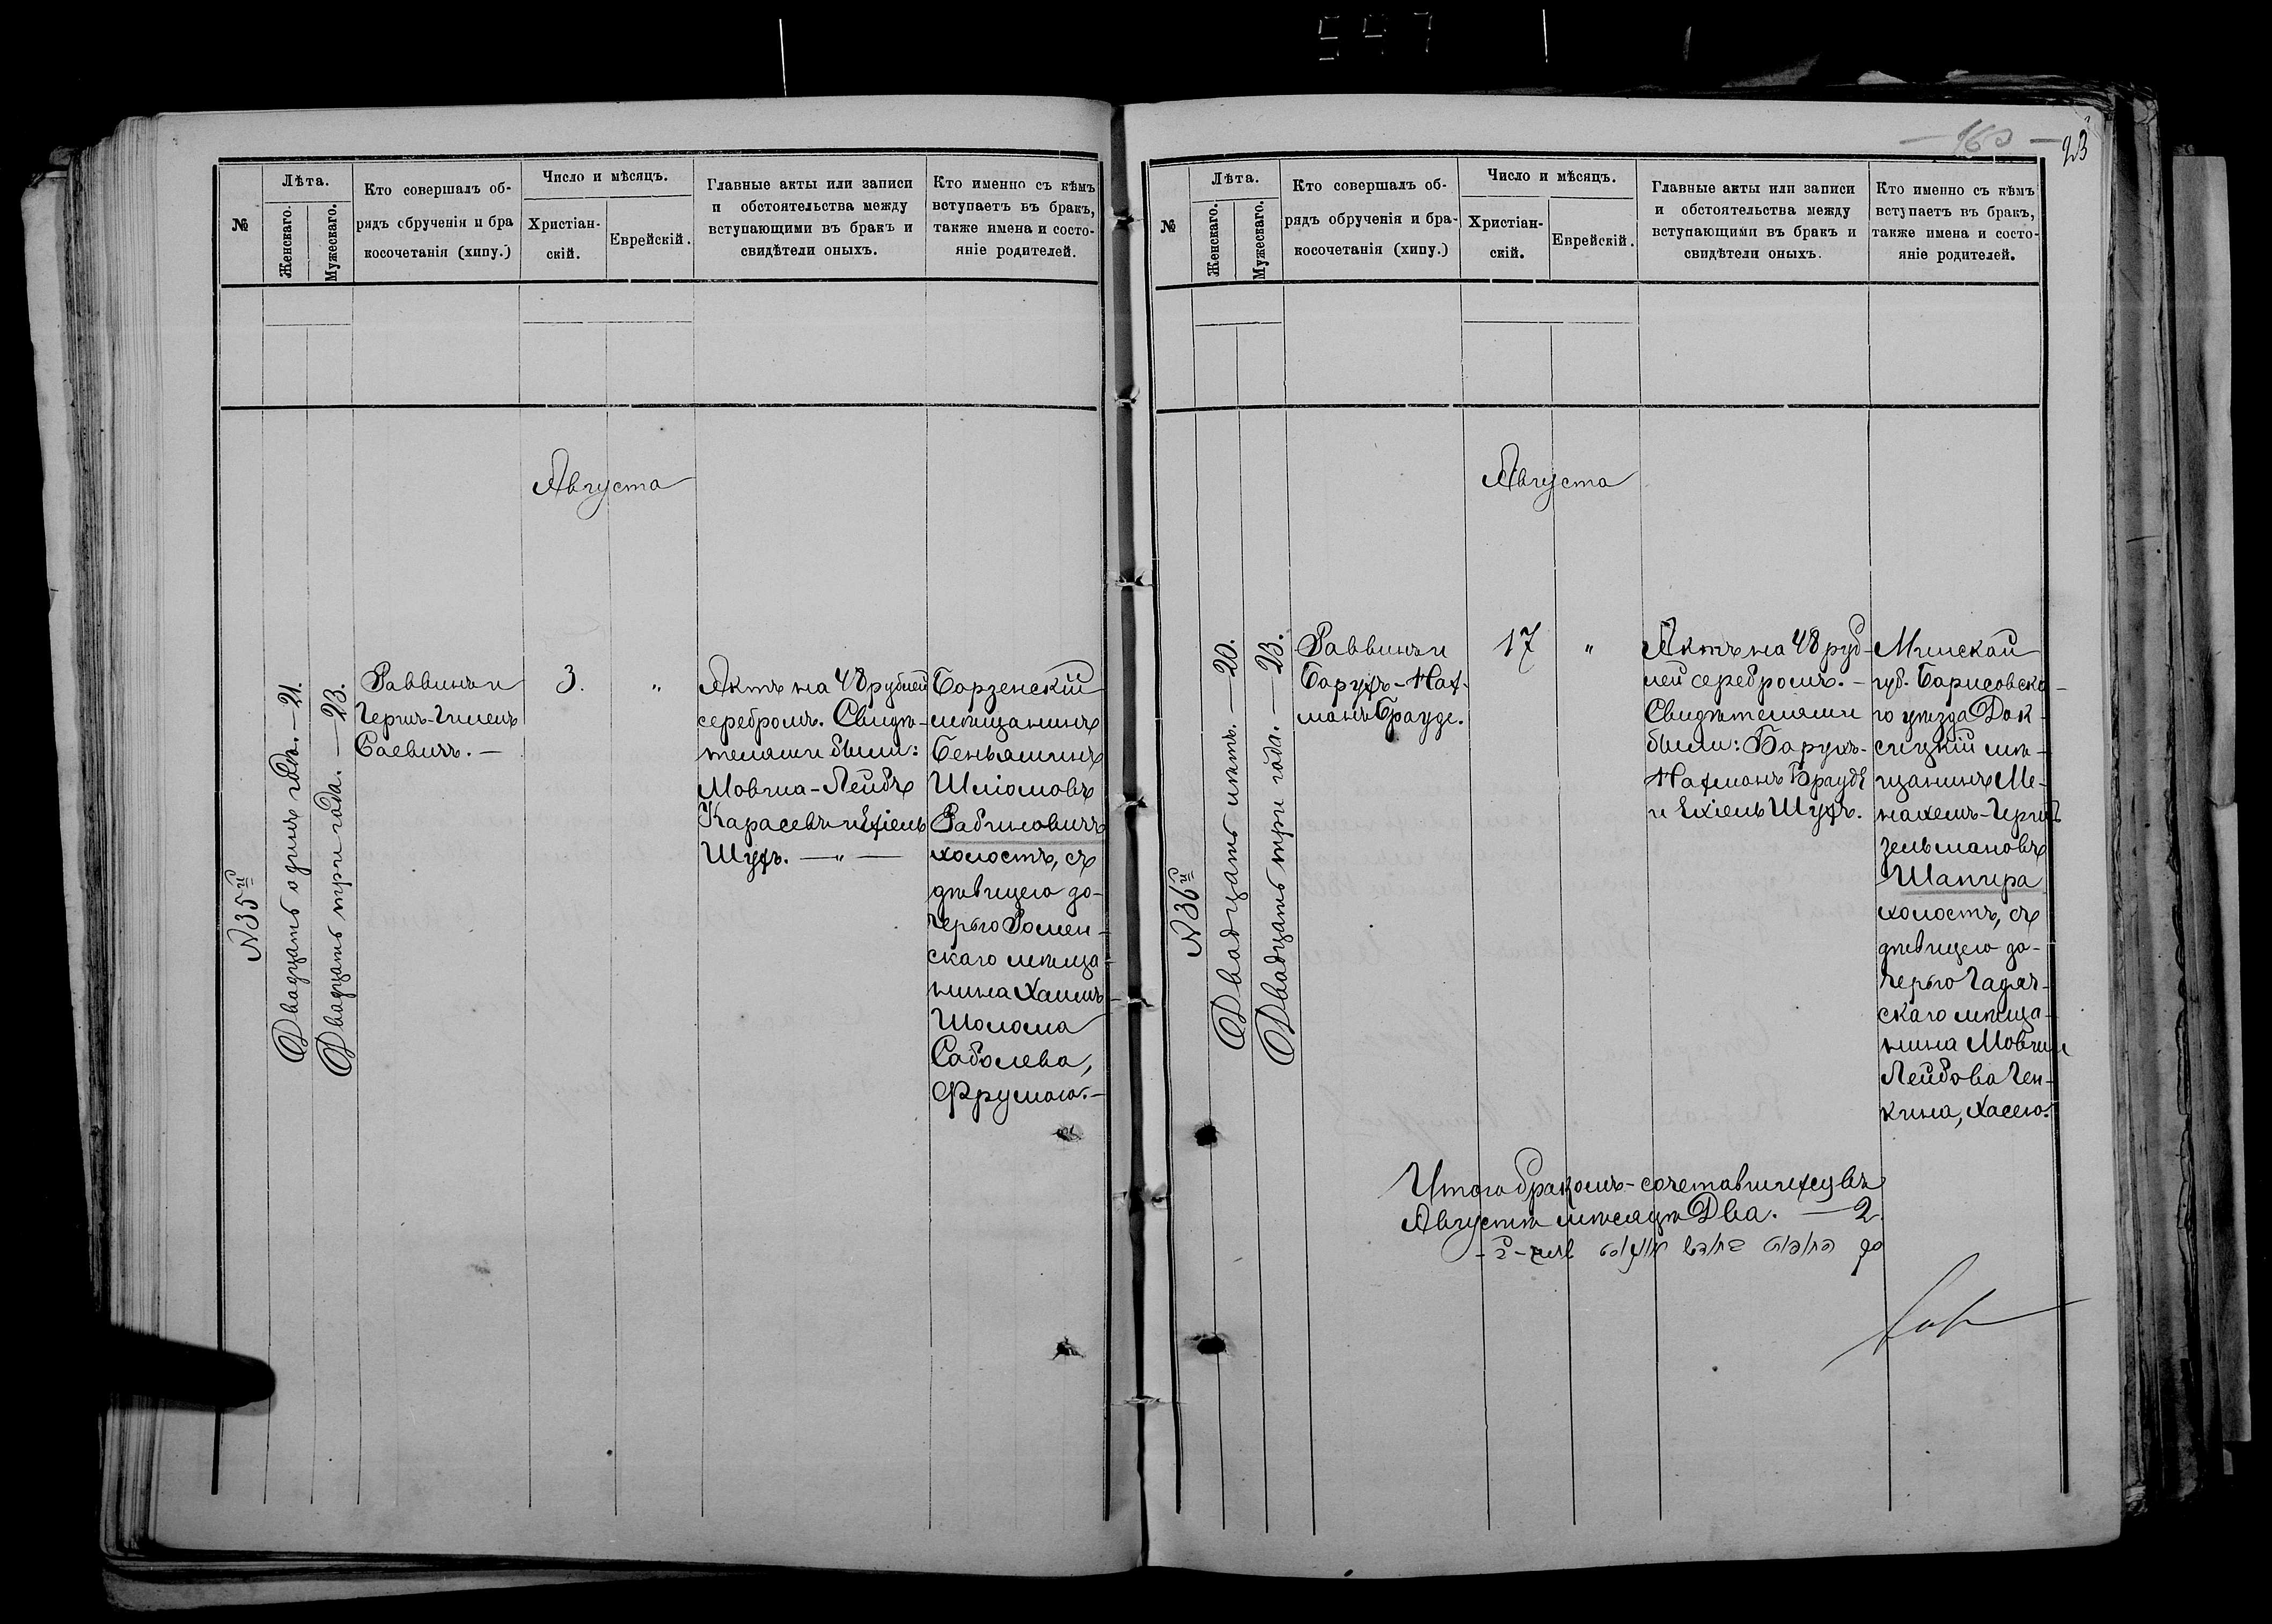 597
№
Лѣта.
Женскаго.
Мужескаго.
Кто совершалъ об-
рядъ обрученія и бра
косочетанія (хипу.)
Число и мѣсяцъ.
Христіан-
скій.
Еврейскій.
Главные акты или записи
и обстоятельства между
вступающими въ бракъ и
свидѣтели оныхъ.
Кто именно съ кѣмъ
вступаетъ въ бракъ,
также имена и состо-
яніе родителей.
Августа
№35й
Двадцать одинъ годъ. — 21.
Двадцать три года. — 23.
Раввинъ и
Герцъ-Гилелъ
Саевичъ. —
3.
"
Актъ на 48 рублей
серебромъ. Свидѣ-
телями были:
Мовша-Лейбъ
Карасевъ и Ехіель
Шухъ. — " —
Борзенскій
мѣщанинъ
Беньяминъ
Шліомовъ
Рабиновичъ
холостъ, съ
дѣвицею до-
черью Ромен-
скаго мѣща-
нина Хаимъ-
Шолома
Соболева,
Фрумою. —
— 160 —
23
№
Лѣта.
Женскаго.
Мужескаго.
Кто совершалъ об-
рядъ обрученія и бра-
косочетанія (хипу.)
Число и мѣсяцъ.
Христіан-
скій.
Еврейскій.
Главные акты или записи
и обстоятельства между
вступающими въ бракъ и
свидѣтели оныхъ.
Кто именно съ кѣмъ
вступаетъ въ бракъ,
также имена и состо-
яніе родителей.
Августа
№36й
Двадцать лѣтъ. — 20.
Двадцать три года. — 23.
Раввинъ и
Барухъ-Нах-
манъ Брауде.
17
"
Актъ на 48 руб-
лей серебромъ. —
Свидѣтелями
были: Барухъ-
Нахманъ Брауде
и Ехіель Шухъ.
Минской
губ. Борисовска-
го уѣзда Док-
сицкій мѣ-
щанинъ Ме-
нахемъ-Герцъ
Зельмановъ
Шапира
холостъ, съ
дѣвицею до-
черью Гадяч-
скаго мѣща-
нина Мовши
Лейбова Ген-
кина, Хасею.
Итого бракомъ-сочетавшихся въ
Августѣ мѣсяцѣ Два. — 2.